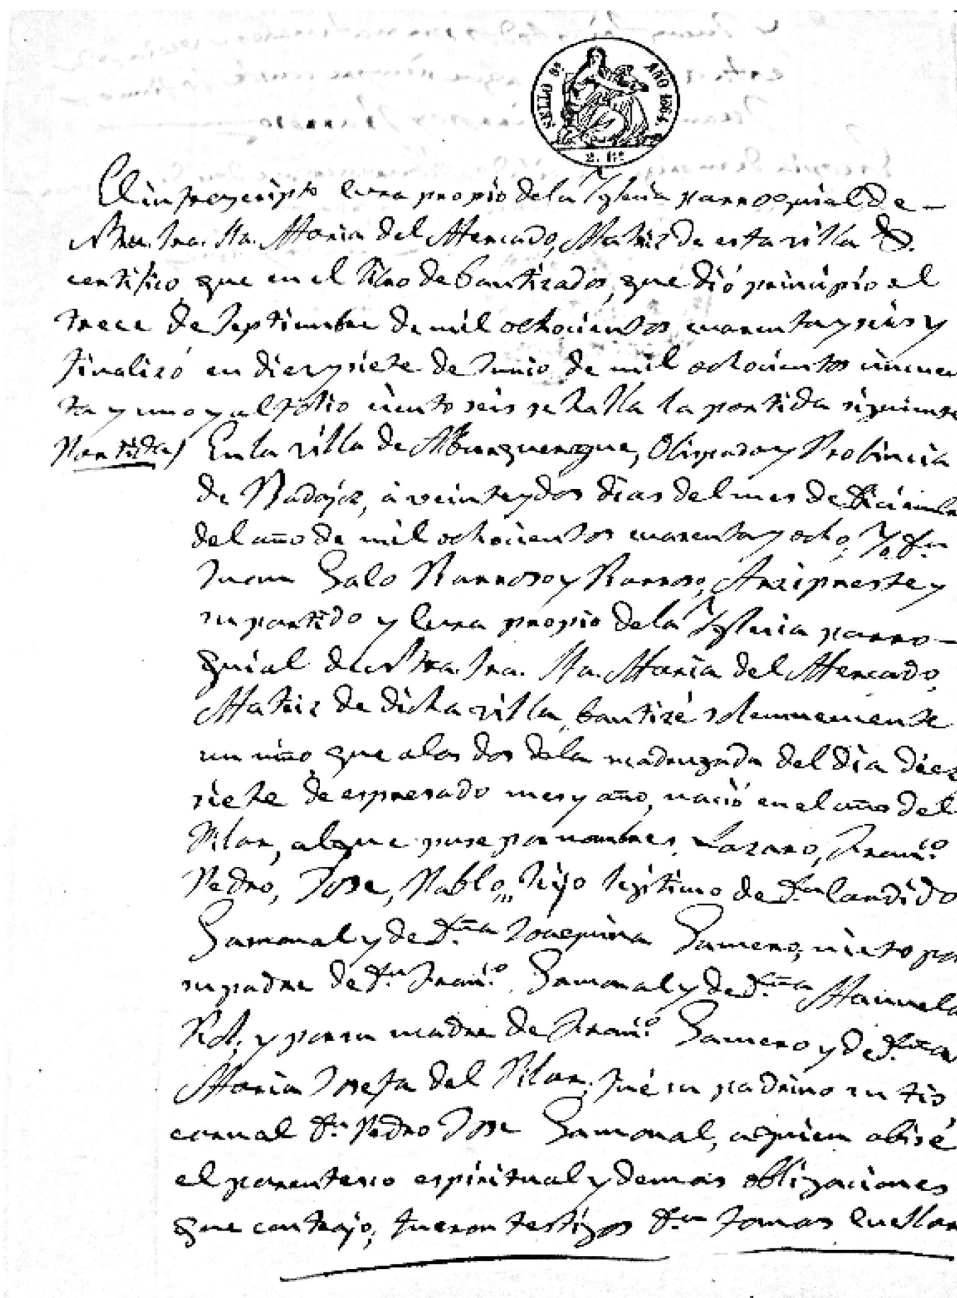 SELLO 9º AÑO 1864.
2. Rs
El infrascripto Cura propio de la Yglesia parroquial de
Ntra. Sra. Sta. Maria del Mercado, Matriz de esta villa &.
certifico que en el libro de bautizados, que dió principio el
trece de Septiembre de mil ochocientos cuarenta y seis y
finalizó en diez y siete de Junio de mil ochocientos cincuen
ta y uno y al folio ciento seis se halla la partida siguiente
Partida) En la villa de Alburquerque, Obispado y Probincia
de Badajoz, á veinte y dos dias del mes de Diciembre
del año de mil ochocientos cuarenta y ocho; Yo Dn.
Juan Galo Barroso y Barroso, Arzipreste y
su partido y Cura propio de la Yglesia parro-
quial de Ntra. Sra. Sta. Maria del Mercado,
Matriz de dicha villa, bautizé solemnemente
un niño que a las dos de la madrugada del dia diez
siete de espresado mes y año, nació en el año del
Pilar, al que puse por nombres Lazaro, Franco.
Pedro, Jose, Pablo, hijo legitimo de Dn. Candido
Gamonal y de Dña. Joaquina Gamero, nieto por
su padre de Dn. Franco. Gamonal y de Dña. Manuela
Rol, y por su madre de Franco. Gamero y de Dña.
Maria Josefa del Pilar; fué su padrino su tio
carnal Dn. Pedro Jose Gamonal, a quien abisé
el parentesco espiritual y demas obligaciones
que contrajo; fueron testigos Dn. Tomas Cuellar